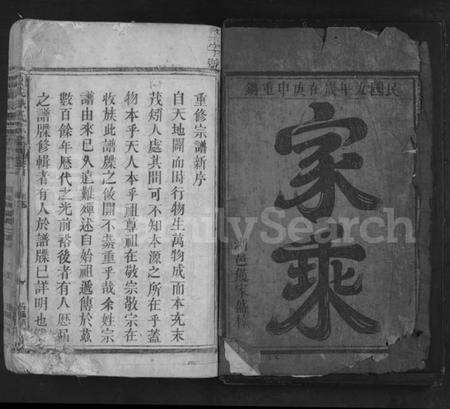 民國五年歲在庚申重鐫
家乘
重修宗譜新序
自天地闢而四行物生萬物成而本支末
茂矧人處其間可不知本源之所在乎蓋
物本乎天人本乎祖尊祖在敬宗敬宗在
收族此譜牒之攸關不綦重乎哉余姓宗
譜由來已久追難殫述自始祖遷傳於茲
數百餘年歷代之光前裕後者有人歷屆
之譜牒修輯者有人於譜牒已詳明也
FamilySearch